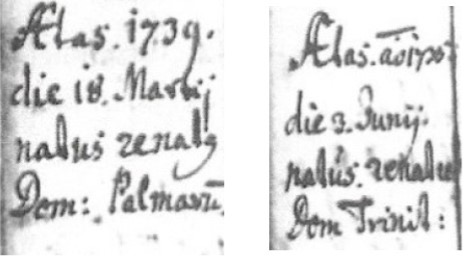 Ætas. 1739.
die 18. Martij
natus renatg
Dom: Palmarū.
Ætas. aō
die 3. Junij.
natus. renatus
Dom Trinit: